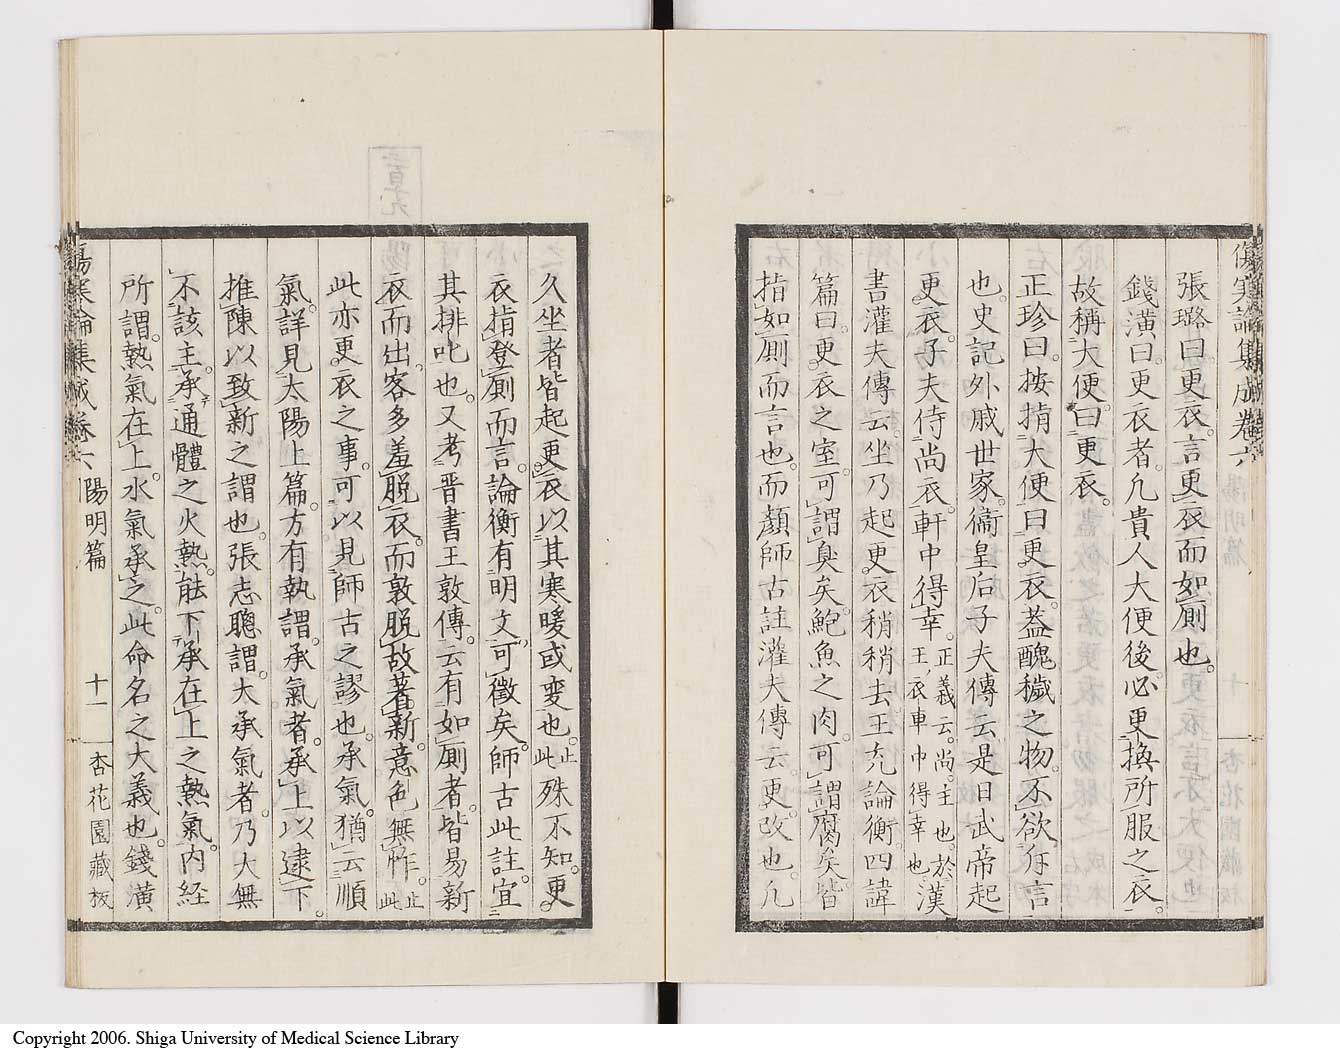 傷寒論集成卷六
張璐曰。更衣。言更衣而如厠也。
錢潢曰。更衣者。凡貴人大便後。必更換所服之衣。
故稱大便。曰更衣。
正珍曰。按揹大便曰更衣。蓋醜穢之物。不欲斥言
也。史記外戚世家。衞皇后子夫傳云。是日武帝起
更衣。子夫侍尚衣。軒中得幸。正義云。尚。主也。於
王、衣車中得幸也漢
書灌夫傳云。坐乃起更衣。稍稍去。王充論衡四諱
篇曰。更衣之室。可謂臭矣。鮑魚之肉。可謂腐矣。皆
指如厠而言也。而顏師古註灌夫傳云。更。改也。凡
久坐者。皆起更衣。以其寒暖或變也。止
此殊不知。更
衣揹登厠而言。論衡有明文可徵矣。師古此註。宜
其排叱也。又考晉書王敦傳。云有如厠者。皆易新
衣而出。客多羞脫衣。而敦脫故著新。意色無怍。止
此
此亦更衣之事。可以見師古之謬也。承氣。猶云順
氣。詳見太陽上篇。方有執謂。承氣者。承上以逮下。
推陳以致新之謂也。張志聰謂。大承氣者。乃大無
不該。主承通體之火熱。能下承在上之熱氣。內經
所謂。熱氣在上。水氣承之。此命名之大義也。錢潢
傷寒論集成卷六 陽明篇 十一 杏花園藏板
三百十九
Copyright 2006. Shiga University of Medical Science Library